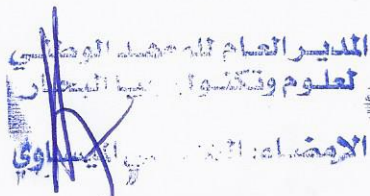 المدير العام للمعهد الوطني
لعلوم وتكنولوجيا البحار
الإمضاء: العيساوي